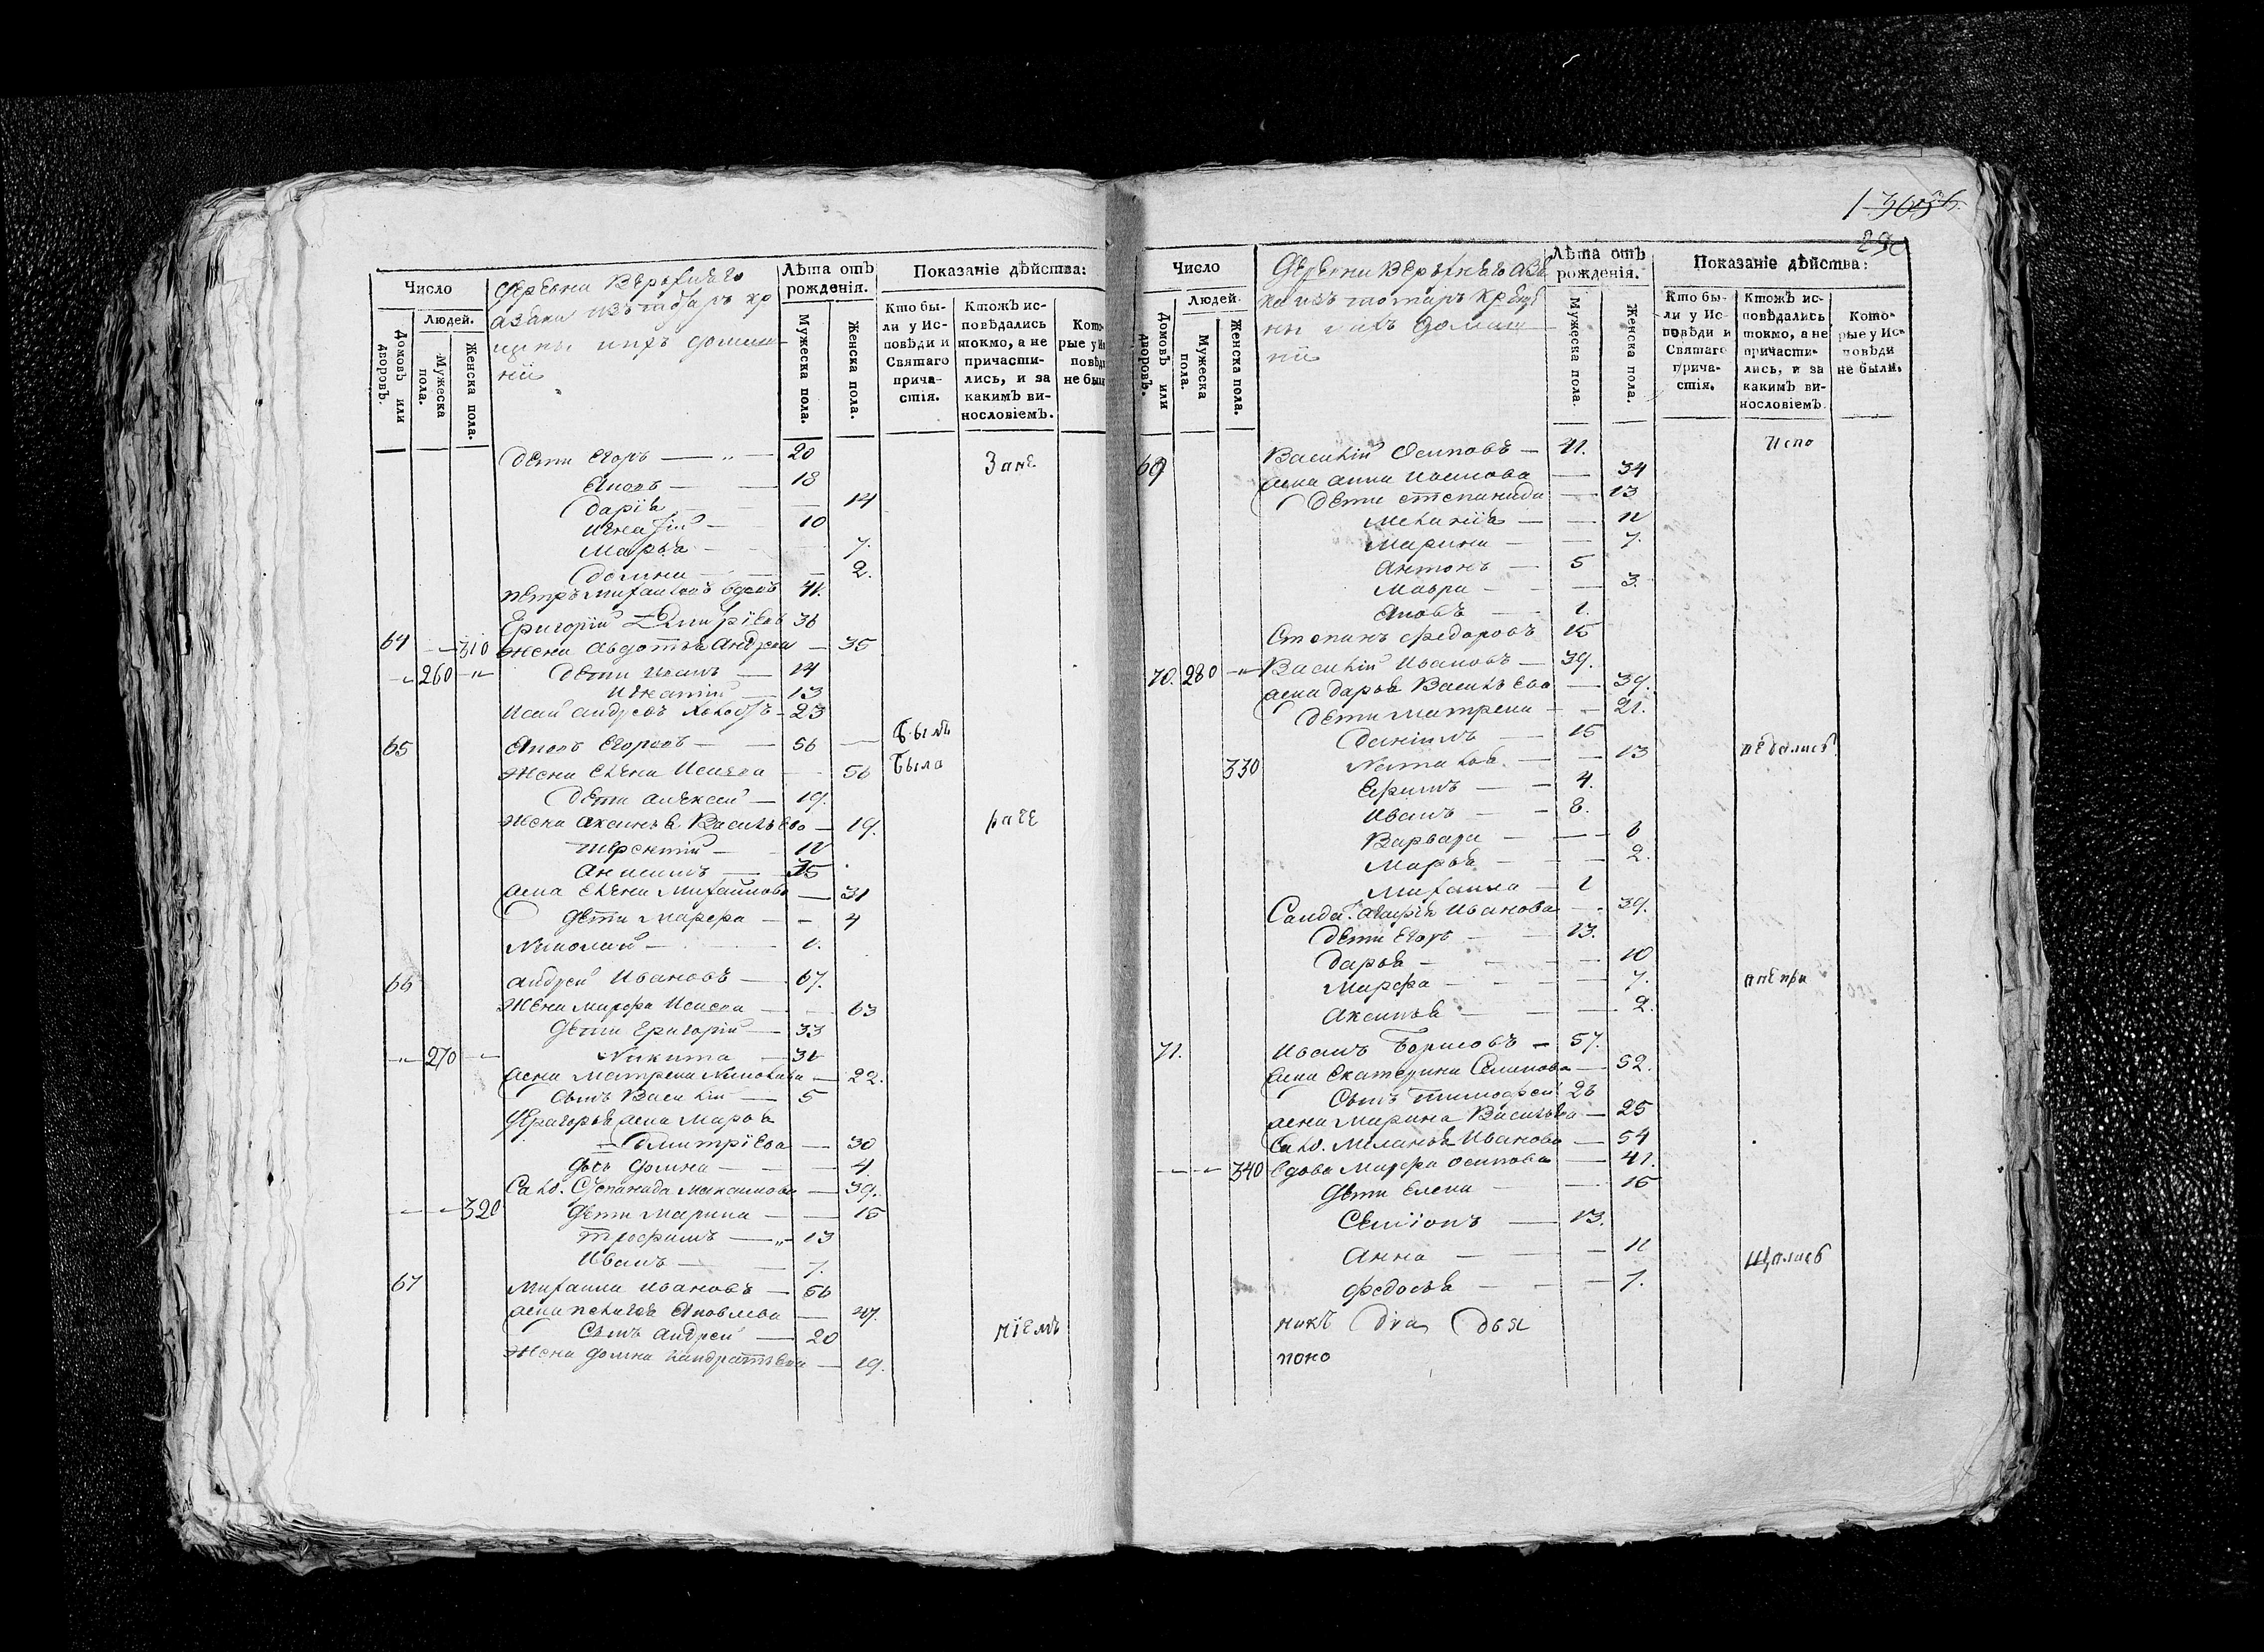 Число
Людей.
Домовъ или дворовъ.
Мужеска пола.
Женска пола.
Деревни Верхняго
Азяка изъ татаръ кр
щены ихъ домаш
нїи
Лѣта отъ рожденія.
Мужеска пола.
Женска пола.
Показаніе дѣйства:
Кто бы-
ли у Ис-
повѣди и
Святаго
прича-
стія.
Ктожъ ис-
повѣдались
токмо, а не
причасти-
лись, и за
какимъ ви-
нословіемъ.
Кото-
рые у Ис
повѣди
не были
Дети Егоръ — 20 Зане
Яковъ — 18
Дарія — 14
Игнатїй — 10
Марья — 7.
Домна — 2.
Петръ Михайловъ вдовъ 41.
Григорїй Дмитрїевъ 36
64 310 Жена Авдотья Андреева — 35
260 Дети Иванъ — 14
Игнатїй — 13
Исай Андреевъ — 23
65 Яковъ Егоровъ — 56 Былъ
Жена Елена Исаева — 56 Была
Дети Алексей — 19.
Жена Аксинья Васильева — 19. раче
Терентїй — 12
Анисимъ — 35
жена Елена Михайлова — 31
Дети Марфа — 4
Николай — 1.
66 Андрей Ивановъ — 67.
Жена Марфа Исаева — 63
Дети Григорїй — 33
270 Никита — 31
жена Матрена Николаева — 22.
Сынъ Василїй — 5
Григорья жена Марья
Дмитрїева — 30
Дочь Домна — 4.
Салд. Степанида Максимова — 39.
320 Дети Марина — 15
Трофимъ — 13
Иванъ — 7.
67 Михаила Ивановъ — 56
жена Пелагея Яковлева — 47.
Сынъ Андрей — 20 нїемъ
Жена Домна Кандратьева — 19.
1303
290
Число
Людей.
Домовъ или дворовъ.
Мужеска пола.
Женска пола.
Деревни Верхнего Азя
ка изъ татаръ креще
ны ихъ домаш
нїи
Лѣта отъ рожденія.
Мужеска пола.
Женска пола.
Показаніе дѣйства:
Кто бы-
ли у Ис-
повѣди и
Святаго
прича-
стія.
Ктожъ ис-
повѣдались
токмо, а не
причасти-
лись, и за
какимъ ви-
нословіемъ.
Кото-
рые у Ис-
повѣди
не были.
69 Василїй Осиповъ — 41. Испо
жена Анна Иванова — 34
Дети Степанида — 13
Меланїя — 11
Марина — 7.
Антонъ — 5
Мавра — 3.
Яковъ — 1.
Степанъ Федоровъ 15
70. 280 Василїй Ивановъ — 39.
жена Дарья Васильева — 39.
Дети Матрена — 21.
Данїилъ — 15
330 Наталья — 13 ведались
Ефимъ — 4.
Иванъ — 8.
Варвара — 6
Марья — 2.
Михаила — 1
Салда. Иванова — 39.
Дети Егоръ — 13.
Дарья — 10
Марфа — 7. анепри
Аксинья — 2.
71. Иванъ Борисовъ — 57.
жена Екатерина Семенова — 52.
Сынъ Тимофей 26
жена Марина Васильева — 25
Салд. Меланья Иванова — 54
340 Вдова Марфа Осипова — 41.
Дети Елена — 15
Семїонъ — 13.
Анна — 11 щались
Федосья — 7.
поно